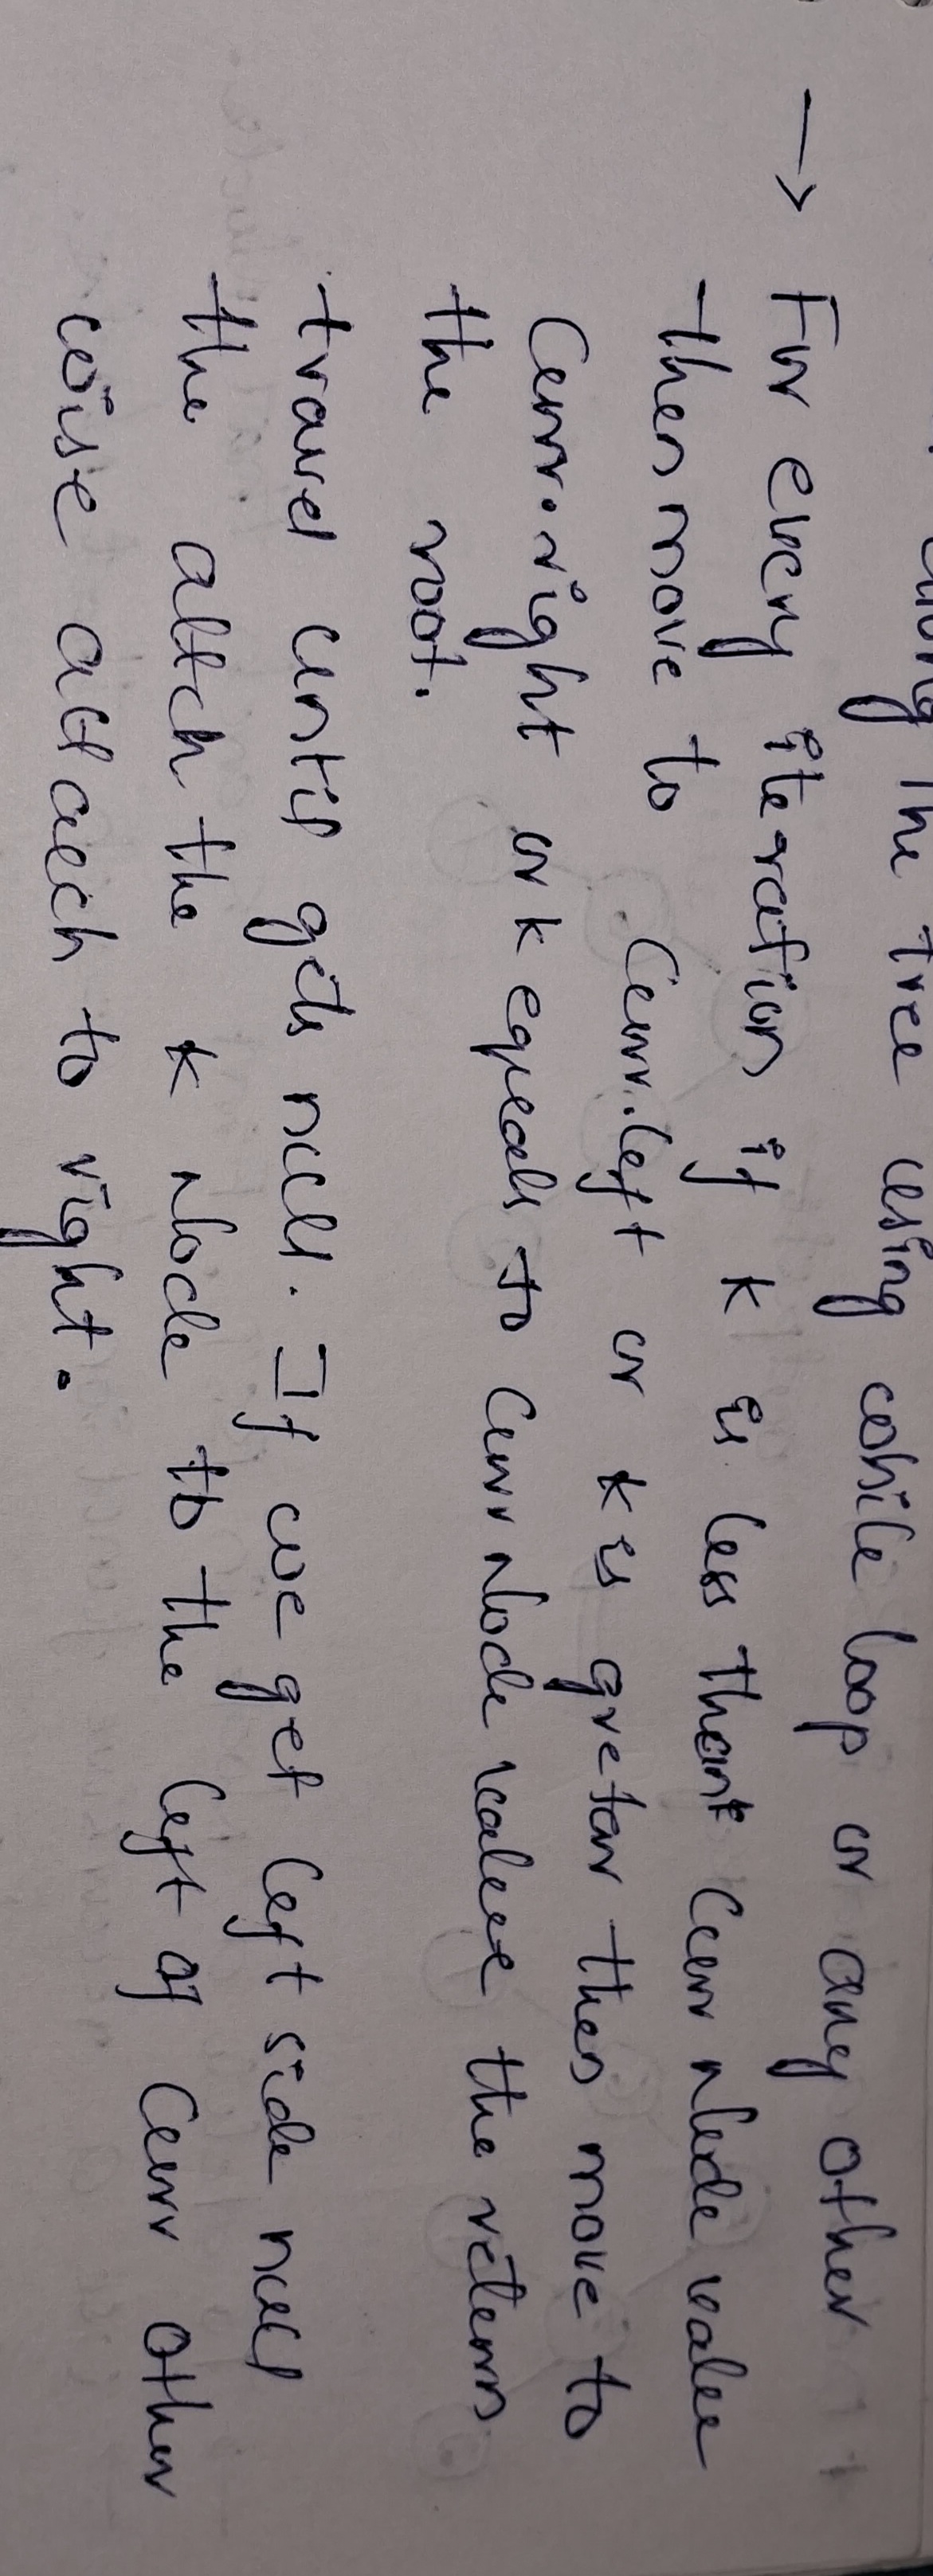 the tree using while loop or any other
→ For every iteration if k is less than curr node value
then move to curr.left or k is gretar then move to
curr.right or k equals to curr node value the return
the root.
travel until gets null. If we get left side null
the attch the k node to the left of curr other
wise attach to right.